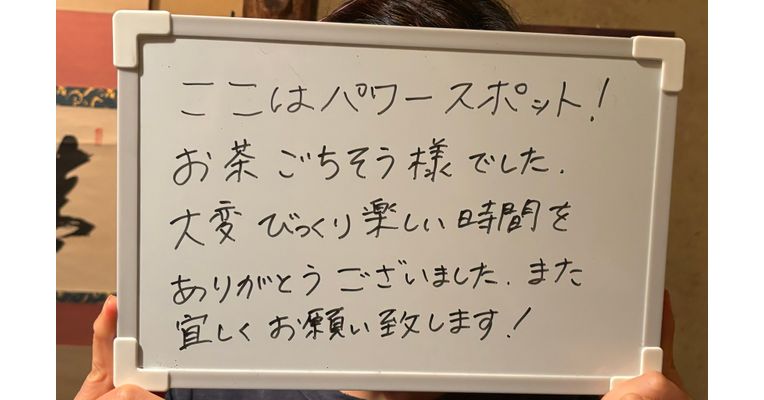 ここはパワースポット!
お茶ごちそう様でした.
大変びっくり楽しい時間を
ありがとうございました.また
宜しくお願い致します!